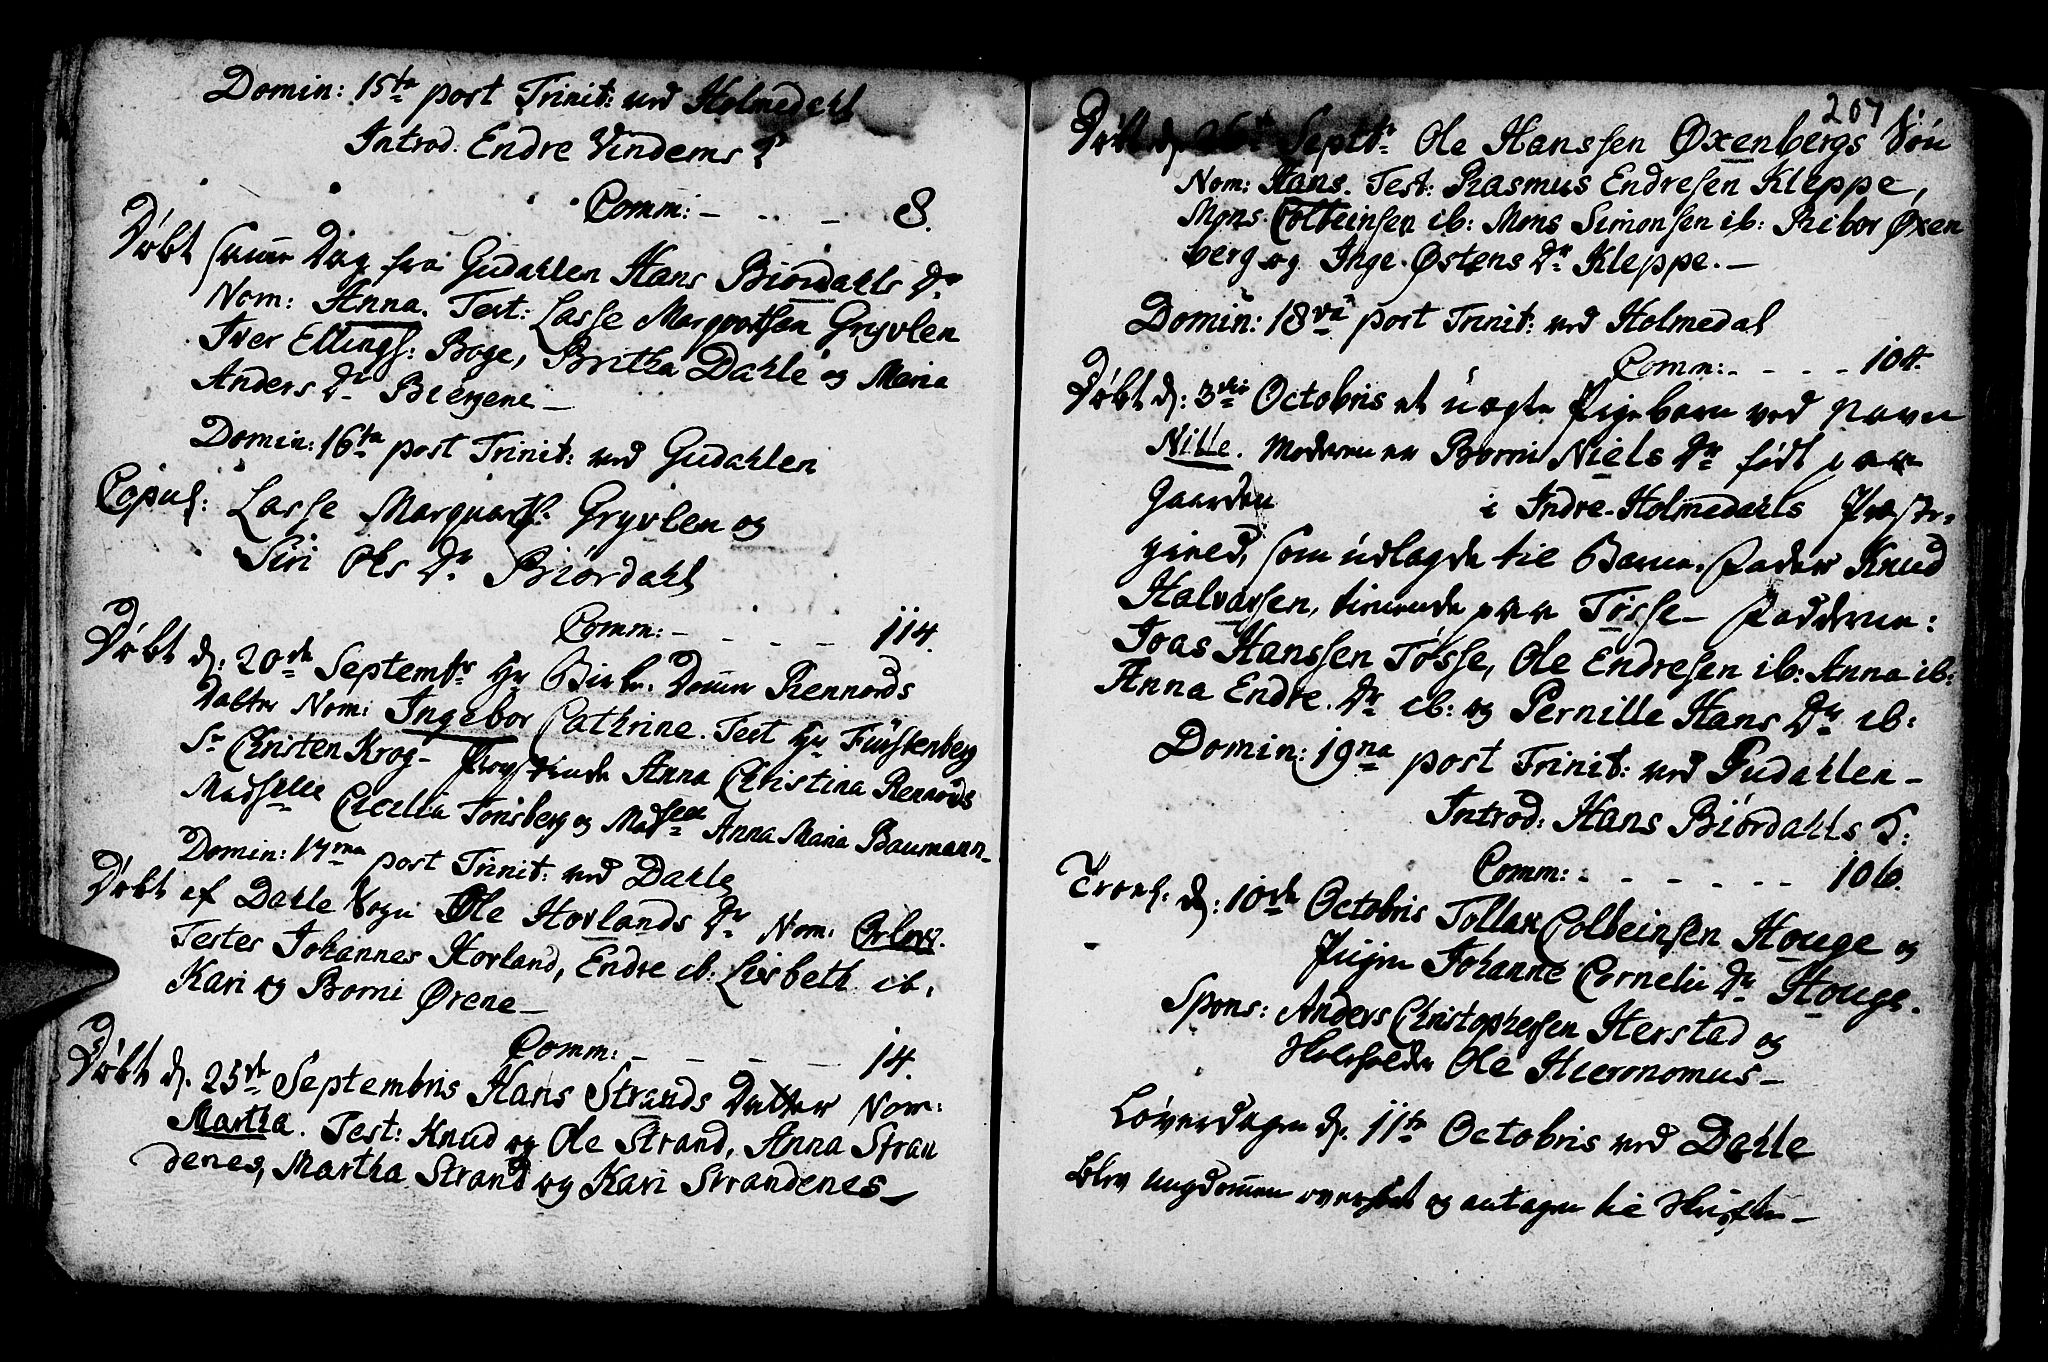 Domin: 15ta post Trinit: ved Holmedahl
Introd. Endre Vindems
Comm: - .. - 8.
Døbt samme Dag fra Gudahlen Hans Biördahls Dr
Nom: Anna. Test: Lasse Marquartsen Gryvlen
Iver Ellings: Boge, Britha Dahle og Maria
Anders Dr Biergene -
Domin: 16ta post Trinit: ved Gudahlen
Copul: Lasse Marquarts: Gryvlen og
Siri Ols Dr Biördahl
Comm: - - - - 114.
Døbt d: 20de Septembr Hr Rennords
Datter Nom: Ingebor Cathrine. Test Hr Fürstenberg
Sr Christen Krog - Anna Christina Rennords
Madselle Cecilia Tönsberg og Madselle Anna Maria Baumann -
Domin: 17ma post Trinit: ved Dahle
Døbt af Dahle Sogn Ole Hovlands Dr Nom:
Testes Johannes Hovland, Endre ib: Lisbeth ib.
Kari og Borni Ørene -
Comm: - - - - 14.
Døbt d. 25de Septembris Hans Strands Datter Nom:
Martha. Test: Knud og Ole Strand, Anna Stran
denes, Martha Strand og Kari Strandenes -
207
Døbt d. 26de Septbr: Ole Hanssen Øxenbergs Sön
Nom: Hans. Test: Rasmus Endresen Kleppe,
Mons Colbeinsen ib: Mons Simonsen ib: Ribor Øxen
berg og Inge Østens Dr Kleppe. -
Domin: 18va post Trinit: ved Holmedal
Comm: - - - - 104.
Døbt d: 3tie Octobris et uægte Pigebarn ved Navn
Nille. Moderen er Borni Niels Dr født paa
Gaarden i Indre-Holmedahls Præste-
gield, som udlagde til Barne-Fader Knud
Halvorsen, tienende paa Tøsse - Fadderne:
Joas Hanssen Tøsse, Ole Endresen ib: Anna ib:
Anna Endre Dr ib: og Pernille Hans Dr ib:
Domin: 19na post Trinit: ved Gudahlen -
Introd: Hans Biördahls
Comm: - - - - - - 106.
Trol: d: 10de Octobris Tollak Colbeinsen Houge og
Pigen Johanne Corneli Dr Houge.
Spons: Anders Christophersen Herstad og
Ole Hieronomus -
Løverdagen d. 11te Octobris ved Dahle
blev ungdommen overhørt og antagen til Skrifte -